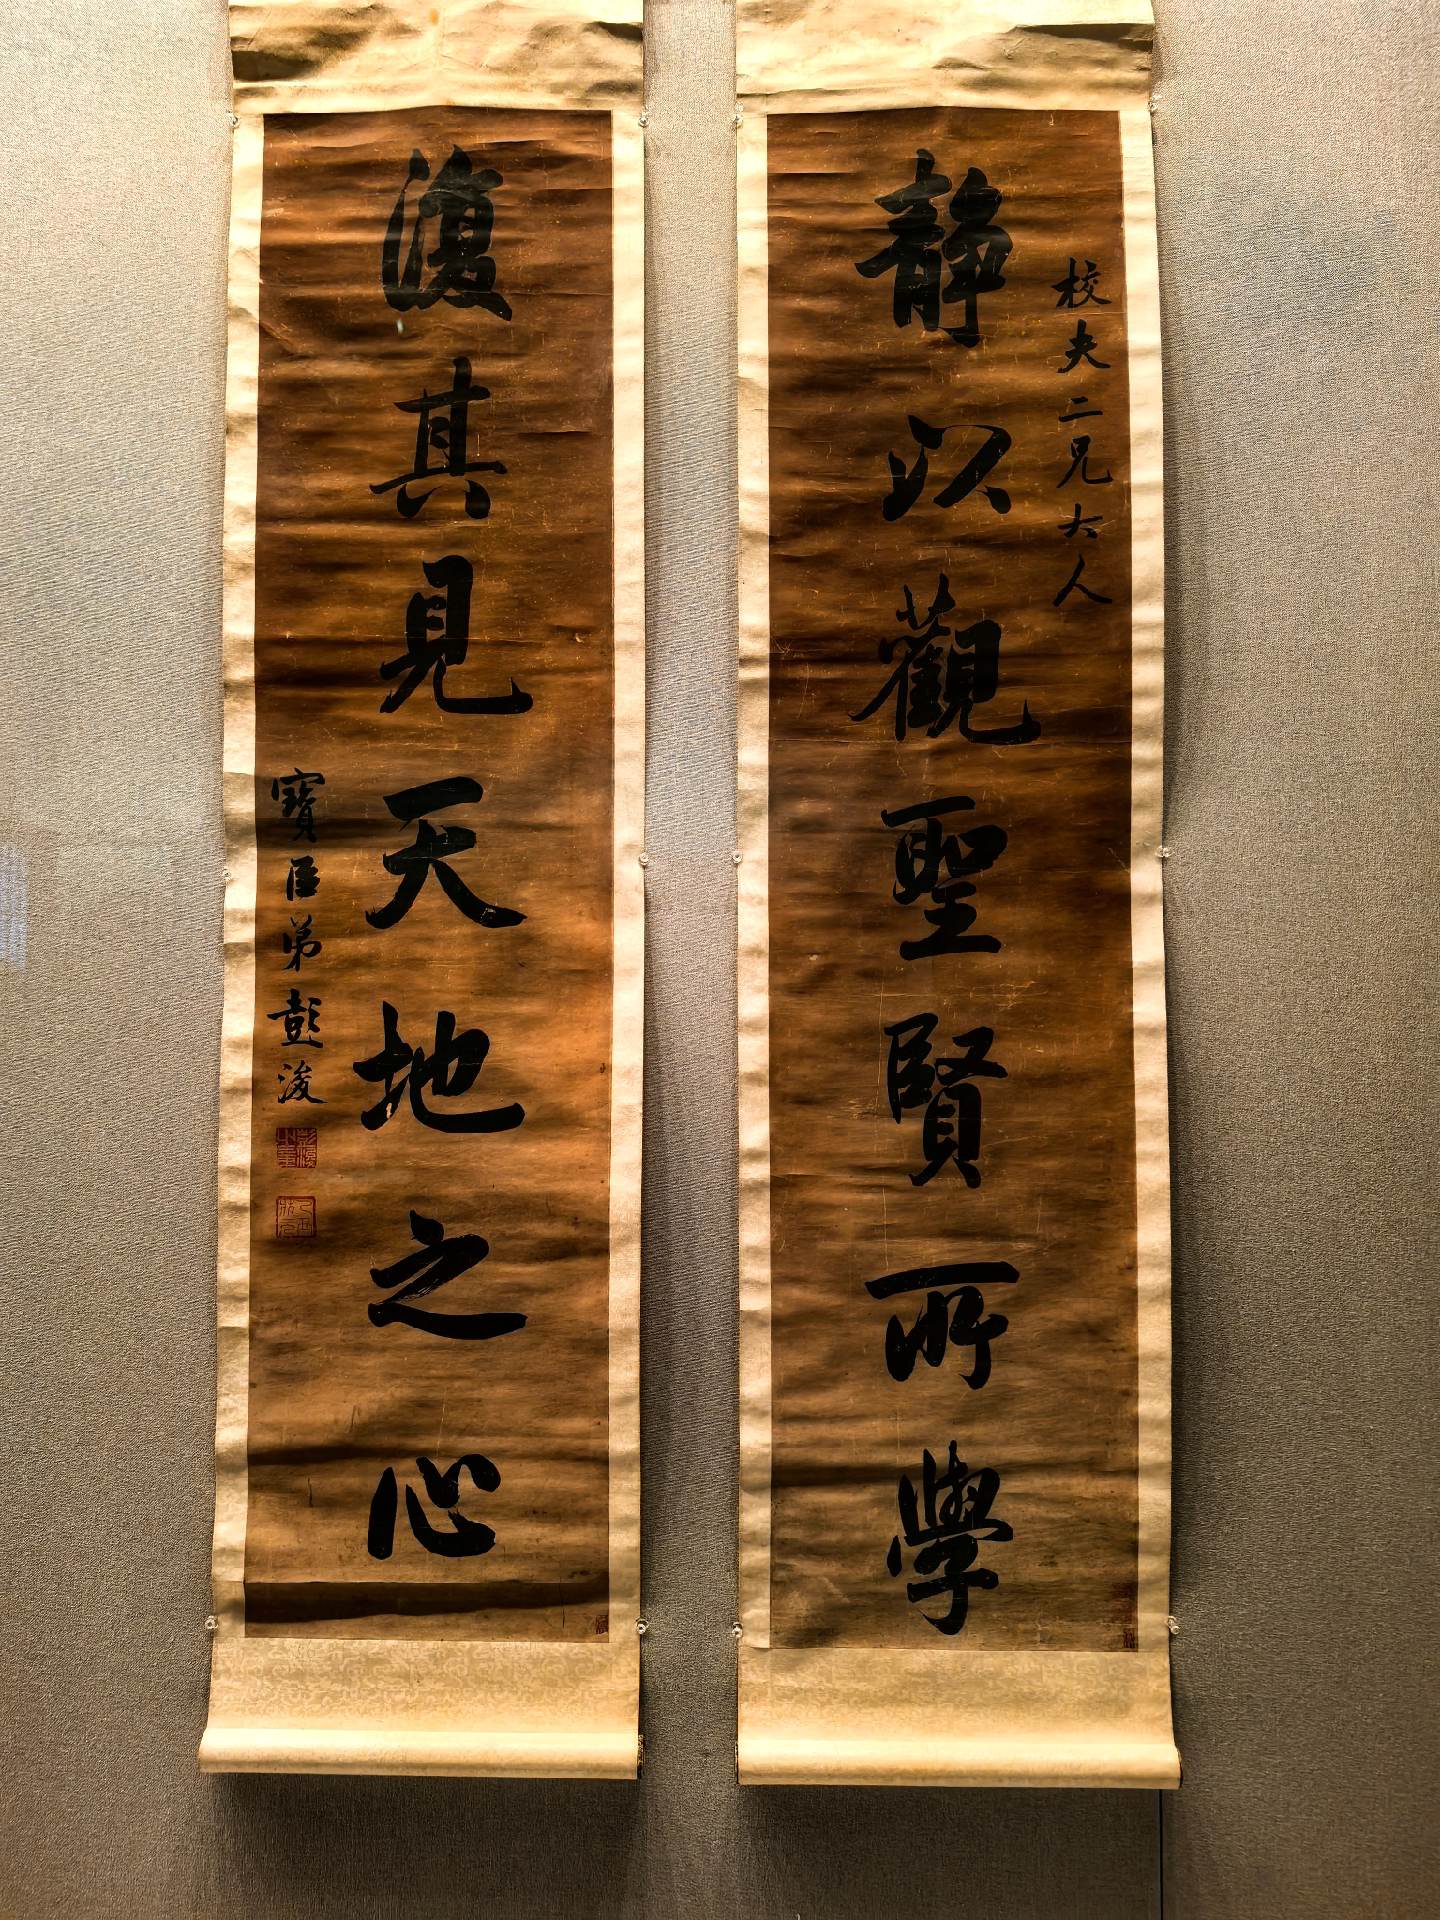 校夫二兄大人
静以觀聖賢所學
復其見天地之心
寶臣弟彭浚
彭浚之印